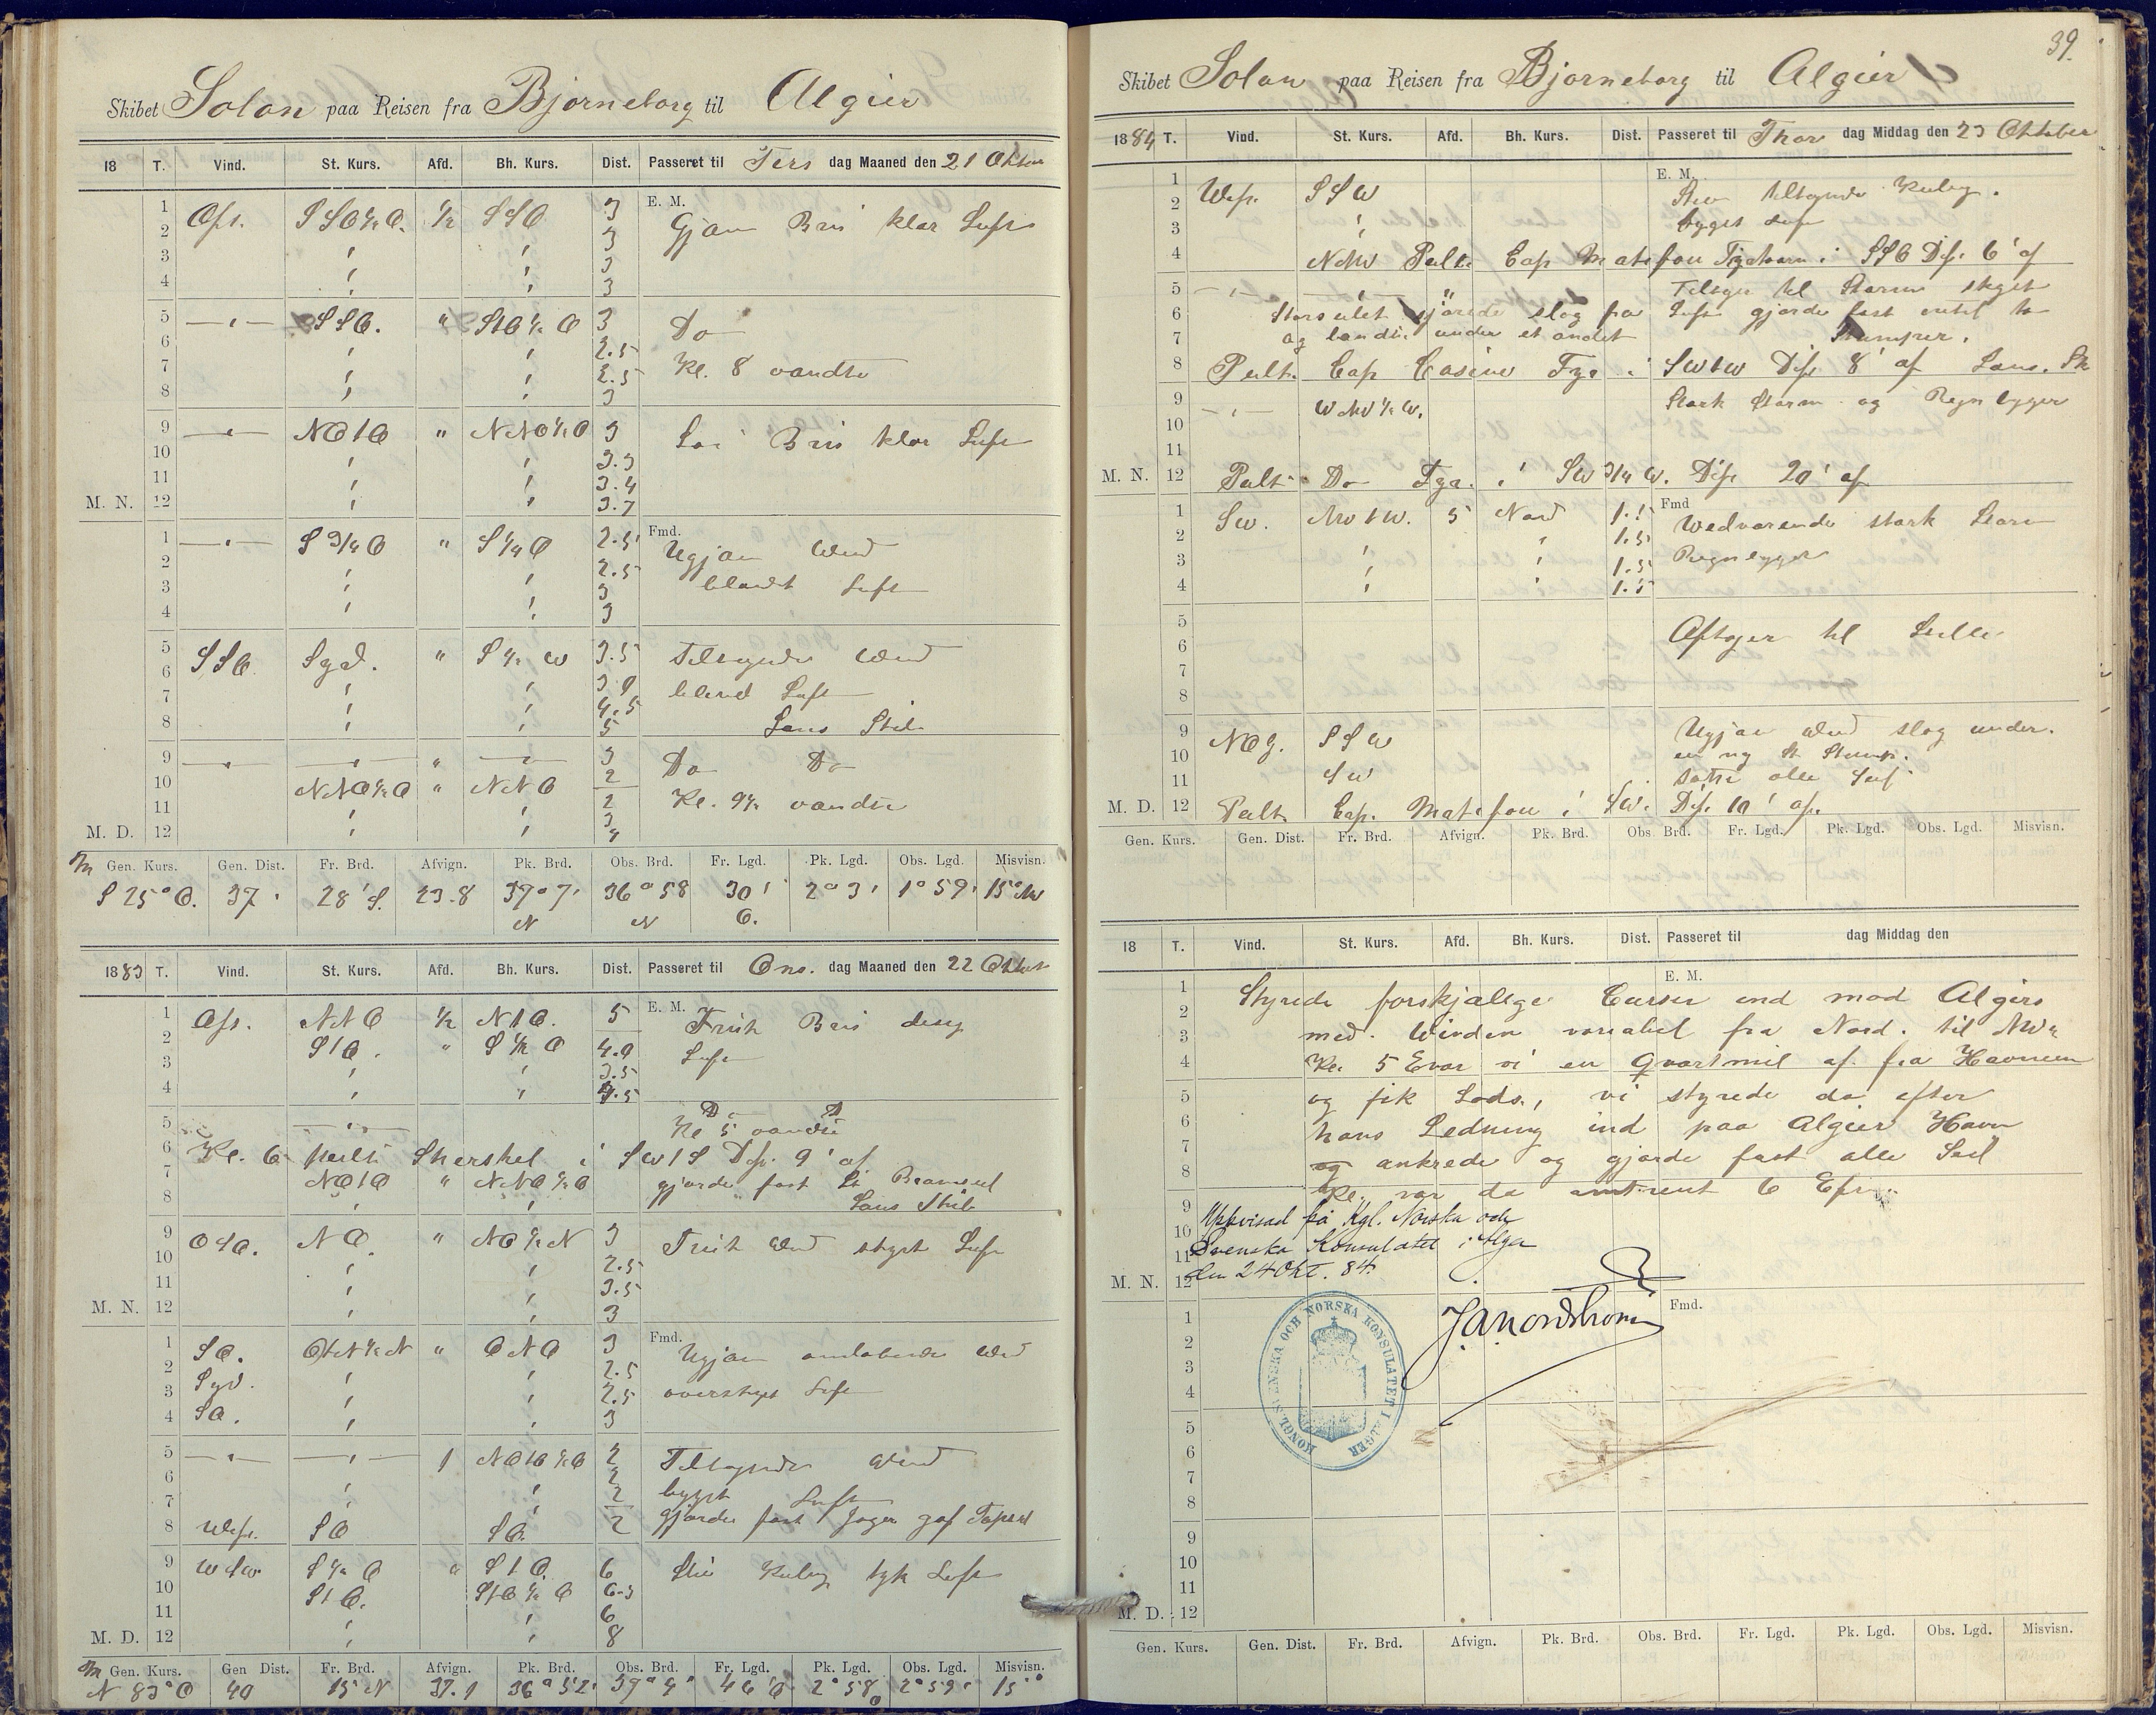 Skibet Solon paa Reisen fra Bjørneborg til Algier
18 T. Vind. St. Kurs. Afd. Bh. Kurs. Dist. Passeret til Tirs dag Maaned den 21 Oktbr
E. M.
1 Ost. SSO½O. ½ SSO 3 Gjæv Bris klar Luft
2 " " 3
3 " " 3
4 " " 3
5 —"— SSO. " StO½O 3 Do
6 " " 2.5
7 " " 2.5 Kl. 8 vendte
8 " " 3
9 —"— NOtO " NNO½O 3 Bris klar Luft
10 " " 3.3
11 " " 3.4
M. N. 12 " " 3.7
Fmd.
1 —"— S¾O " S¼O 2.5 Ugjæv Wind
2 " " 2.5
3 " " 3 Luft
4 " " 3
5 SSO Syd. " S½W 3.5 Tiltagende Wind
6 " "
7 " " 4.5 Luft
8 " " 5 Lens Skib
9 —"— —"— " —"— 3 Do Do
10 NNO½O " NNO 2
11 " " 2 Kl. 9½ vendte
M. D. 12 " " 3
Gen. Kurs. Gen. Dist. Fr. Brd. Afvign. Pk. Brd. Obs. Brd. Fr. Lgd. Pk. Lgd. Obs. Lgd. Misvisn.
S 25° O. 37' 28' S. 23.8 37° 7' N 36° 58 N 30' O. 2° 3' 1° 59' 15° NW
1883 T. Vind. St. Kurs. Afd. Bh. Kurs. Dist. Passeret til Ons. dag Maaned den 22 Oktbr
E. M.
1 Ost. NNO ½ NtO. 5 Frisk Bris disig
2 StO. " S½O 4.0 Luft
3 " " 3.5
4 " " 4.5
5 —"— Do
Kl 5 vendte
6 Kl. 6 peilt Shershel i SWtS Dist. 9' af
7 NOtO " NNO½O gjorde fast Bramseil
8 " " Lens Skib
9 OSO. NO. " NO½N 3 Frisk Wind skyet Luft
10 " " 2.5
11 " " 3.5
M. N. 12 " " 3
Fmd.
1 SO. OtN½N " ONO 3 Ugjæv omløbende Wind
2 Syd. " " 2.5
3 " " 2.5 overskyet Luft
4 SO. " " 3
5 —"— —"— 1 NOtO½O 2 Tiltagende Wind
6 " " 2
7 " " 2 bygst Luft
8 West. SO SO. 2 gjorde fast Jager gaf Topseil
9 WSW. S½O " StO. 6 Stiv Kuling tyk Luft
10 StO. StO½O 6.3
11 " " 6
M. D. 12 " " 8
Gen. Kurs. Gen Dist. Fr. Brd. Afvign. Pk. Brd. Obs. Brd. Fr. Lgd. Pk. Lgd. Obs. Lgd. Misvisn.
N 83° O 40 15' N 37.1 36° 52' 37° 4' 46' O. 2° 58' 2° 59' 15°
39.
Skibet Solon paa Reisen fra Bjorneborg til Algier
1884 T. Vind. St. Kurs. Afd. Bh. Kurs. Dist. Passeret til Thor dag Middag den 23 Oktober
E. M.
1 West. SSW Stiv tiltagende Kuling.
2 "
3 " bygst Luft
4 NNW Peilt Cap Matefou Fyrtaarn i SSO Dist. 6' af
5 —"— —"— Tiltager til Storm skyet
6 Storseilet gjorde slog fra Luft gjorde fast
7 og under et andet Stumper.
8 Peilt. Cap Casine Fyr i SWtW Dist 8' af Lens. Sk
9 —"— WNW½W. Stærk Storm og Regn bygger
10
11
M. N. 12 Peilt Do Fyr. i SW¾W. Dist 20' af
Fmd
1 SW. NWtW. 5 Nord 1.5 Wedvarende stærk Storm
2 " 1.5
3 " " 1.5 Regnbyger
4 " " 1.5
5
6 Aftager til Stille
7
8
9 NOg. SSW Ugjæv Wind slog under.
10 en ny St Stump.
11 SW satte alle Seil
M. D. 12 Peilt Cap. Matefou i SW. Dist. 10' af.
Gen. Kurs. Gen. Dist. Fr. Brd. Afvign. Pk. Brd. Obs. Brd. Fr. Lgd. Pk. Lgd. Obs. Lgd. Misvisn.
18 T. Vind. St. Kurs. Afd. Bh. Kurs. Dist. Passeret til dag Middag den
E. M.
1 Styrede forskjælige Curser ind mod Algiers
2 med. Winden variabel fra Nord. til NW"
3 Kl. 5 E var vi en Qvartmil af fra Havnen
4 og fik Lods., vi styrede da efter
5 hans Ledning ind paa Algier Havn
6 og ankrede og gjorde fast alle Seil
7 Kl. var da omtrent 6 Eft.
8
9 Uppvisad på Kgl. Norska och
10 Svenska Konsulatet i Alger
11 den 24 Okt. 84.
M. N. 12
J A Nordstrom
KONGL. SVENSKA OCH NORSKA KONSULATET I ALGER
Fmd.
1
2
3
4
5
6
7
8
9
10
11
M. D. 12
Gen. Kurs. Gen. Dist. Fr. Brd. Afvign. Pk. Brd. Obs. Brd. Fr. Lgd. Pk. Lgd. Obs. Lgd. Misvisn.